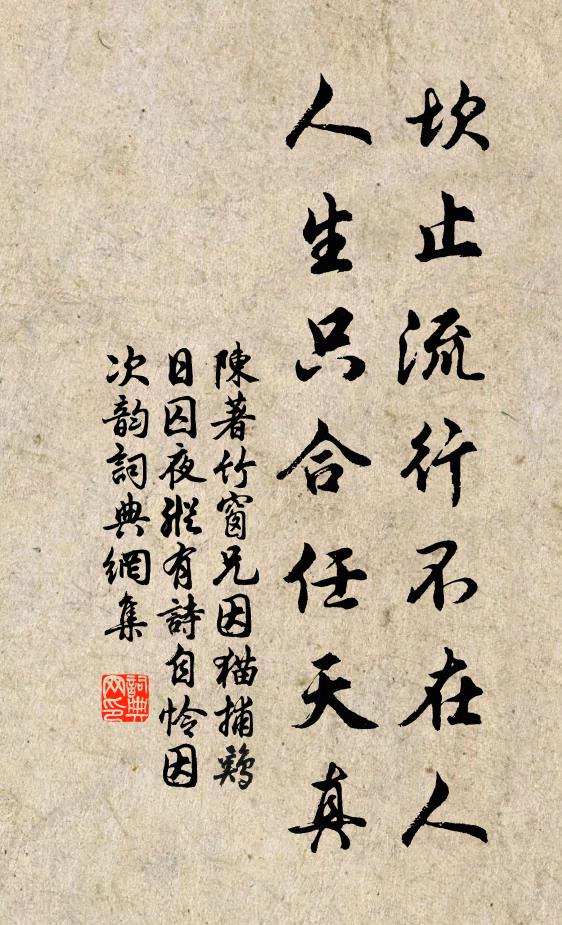 坎止流行不在人
人生只合任天真
陳著竹窗兄因猫捕鷄
日囚夜縱有詩自怜因
次韵詞典網集
詞典
网印